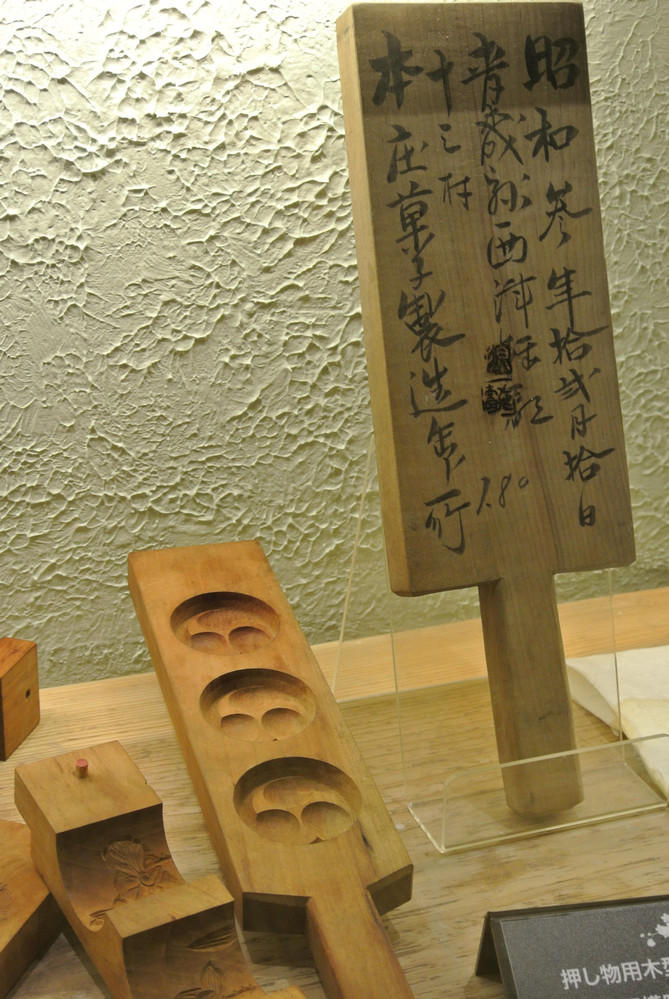 昭和参年拾弐月拾日
青森縣西津軽郡
十三村
1.80
本庄菓子製造所
押し物用木型